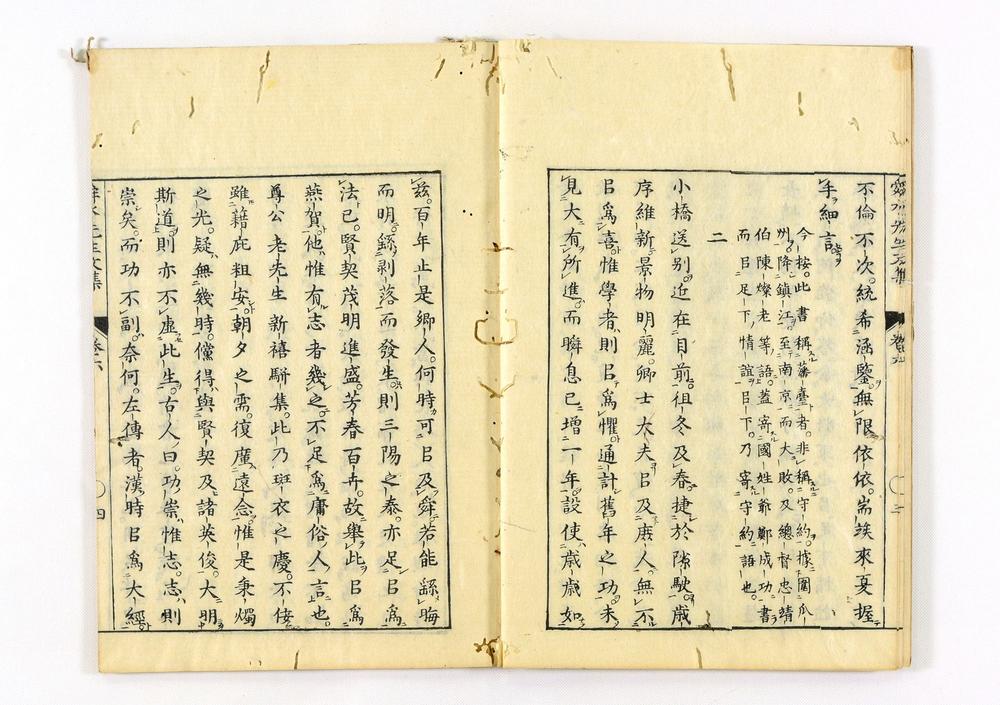 不倫不次。統希涵鑒。無限依依。耑竢來夏握
手細言。
今按。此書稱藩臺者。非稱守約。據圍瓜
州。降鎮江。至南京而大敗。及總督忠靖
伯陳燦老等語。蓋寄國姓爺鄭成功書。
而㠯足下情誼㠯下。乃寄守約語也。
二
小橋送別。近在目前。徂冬及春。捷於隙駛。歲
序維新。景物明麗。卿士大夫㠯及庶人。無不
㠯爲喜。惟學者則㠯爲懼。通計舊年之功。未
見大有所進。而瞬息已增一年。設使歲歲如
兹。百年止是鄉人。何時可㠯及舜。若能繇晦
而明。繇剥落而發生。則三陽之泰。亦足㠯爲
法已。賢契茂明進盛。芳春百卉。故舉此㠯爲
燕賀。他惟有志者幾之。不足爲庸俗人言也。
尊公老先生新禧駢集。此乃斑衣之慶。不佞
雖藉庇粗安。朝夕之需。復廑遠念。惟是秉燭
之光。疑無幾時。儻得與賢契及諸英俊。大明
斯道。則亦不虛此生。古人曰。功崇惟志。志則
崇矣。而功不副。奈何。左傳者。漢時㠯爲大經。
卷六
四